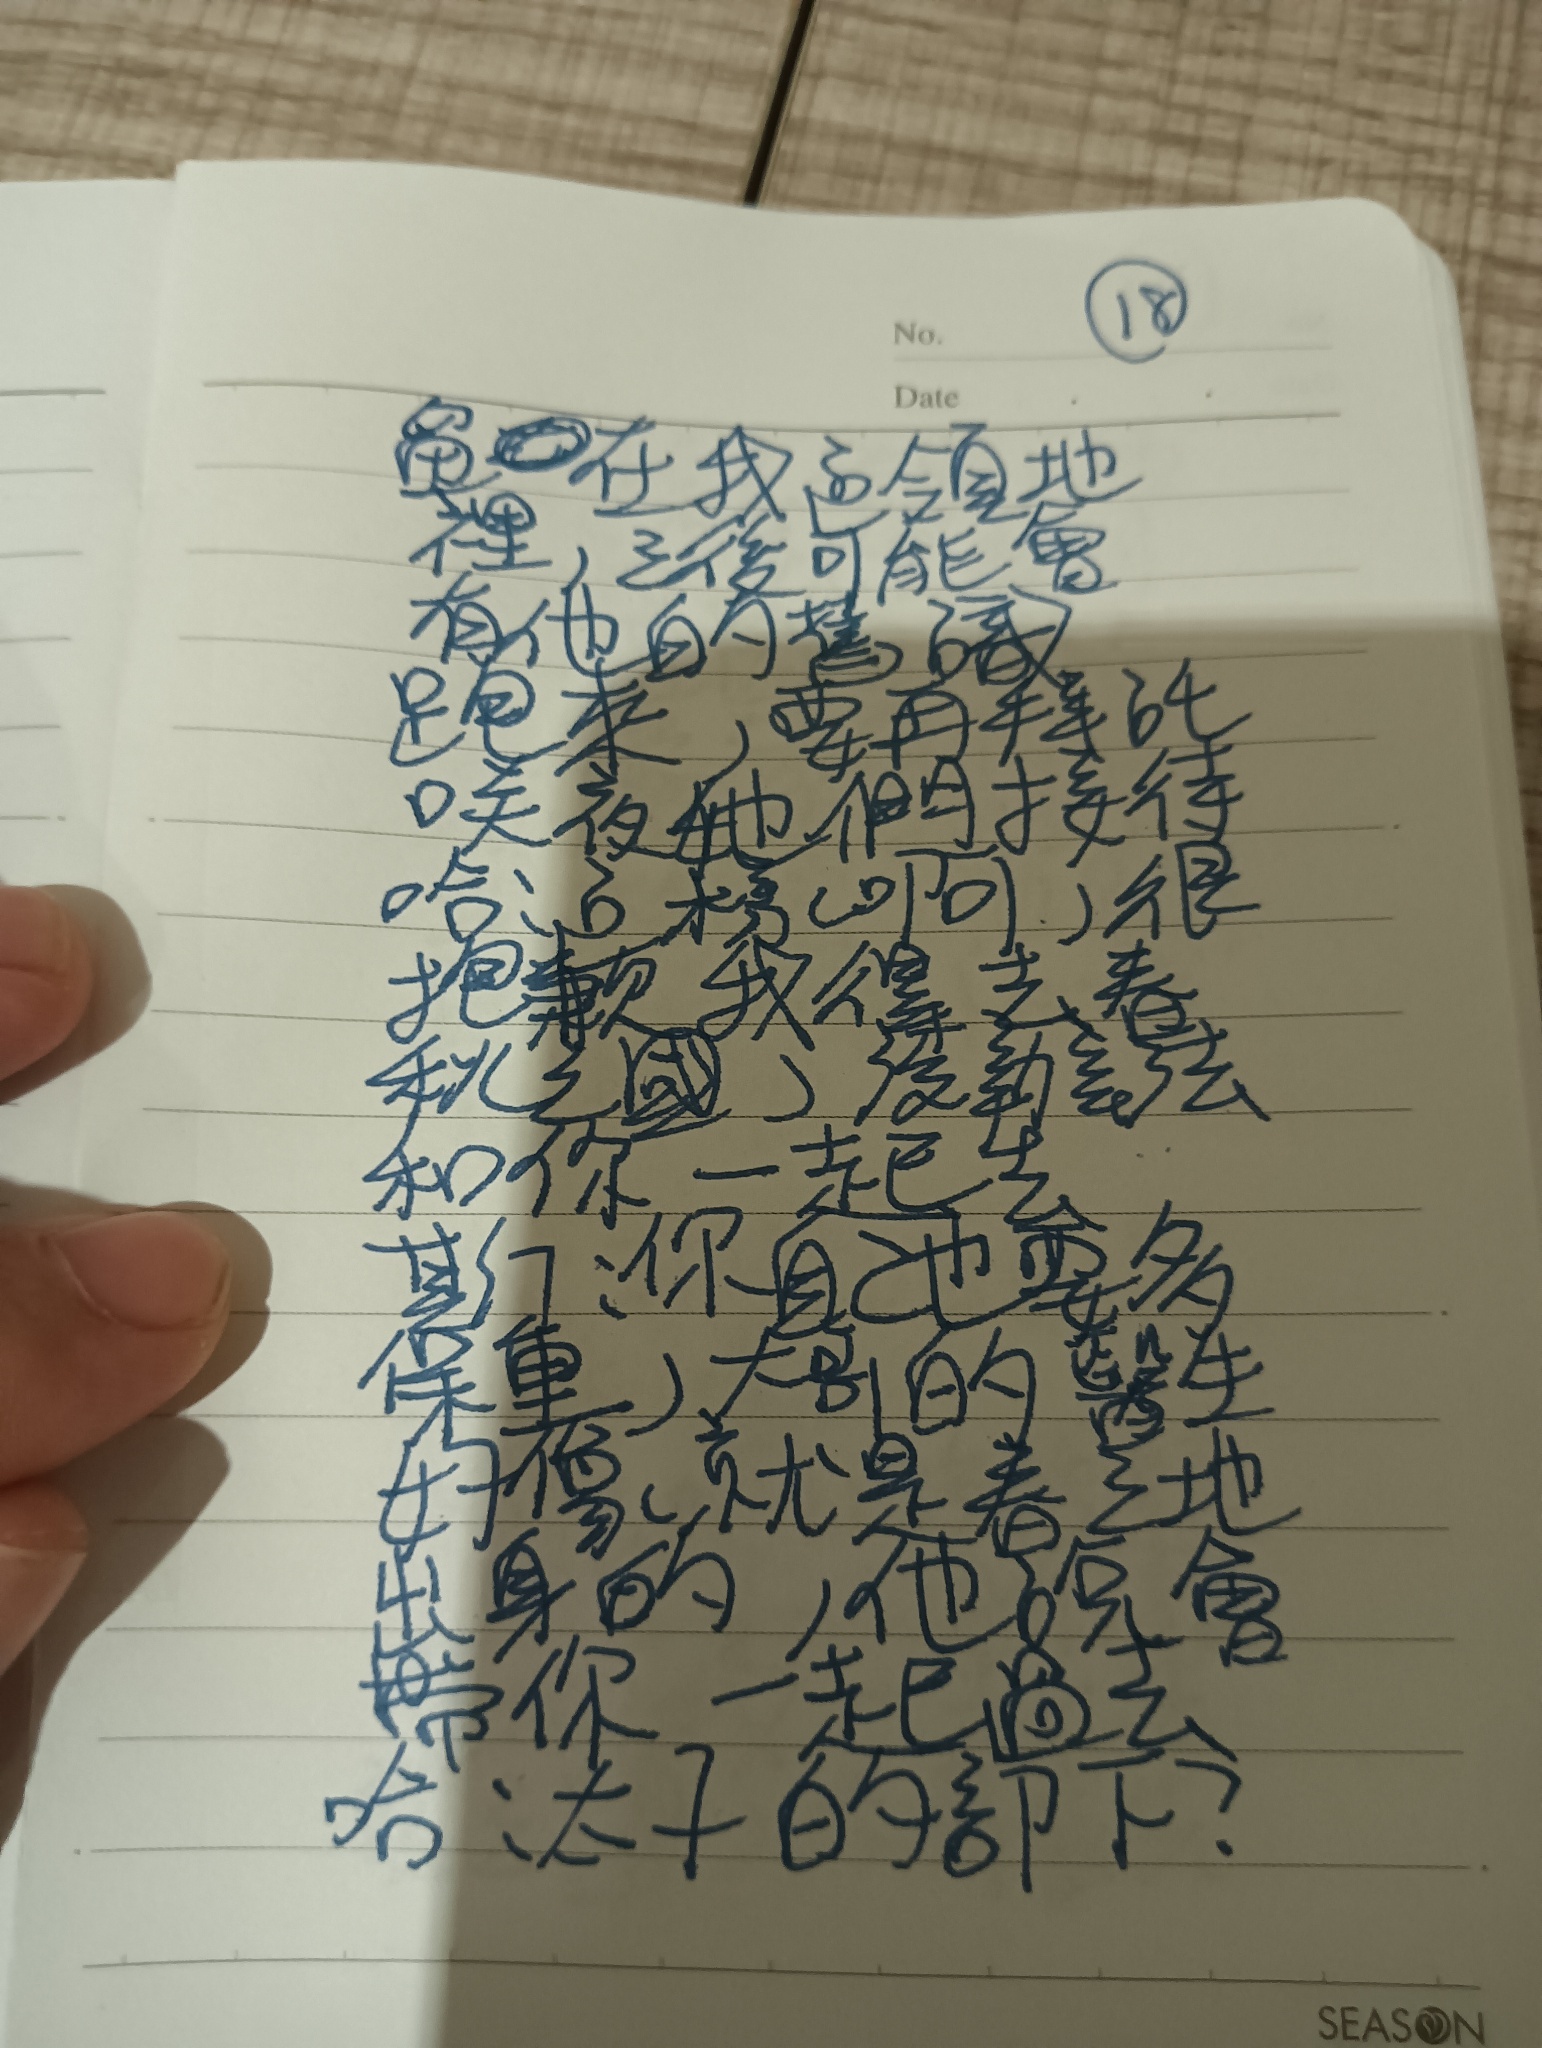 No. 18
Date
在我的領地
裡,之後可能會
有他的舊識
跑來,要再拜託
咲夜她們接待
哈:格啊,很
抱歉我得去春
秋之國,沒辦法
和你一起去
斯:你自也要多
保重,大哥的醫生
好像就是春之地
出身的,他說會
帶你一起過去
哈:太子的部下?
SEASON